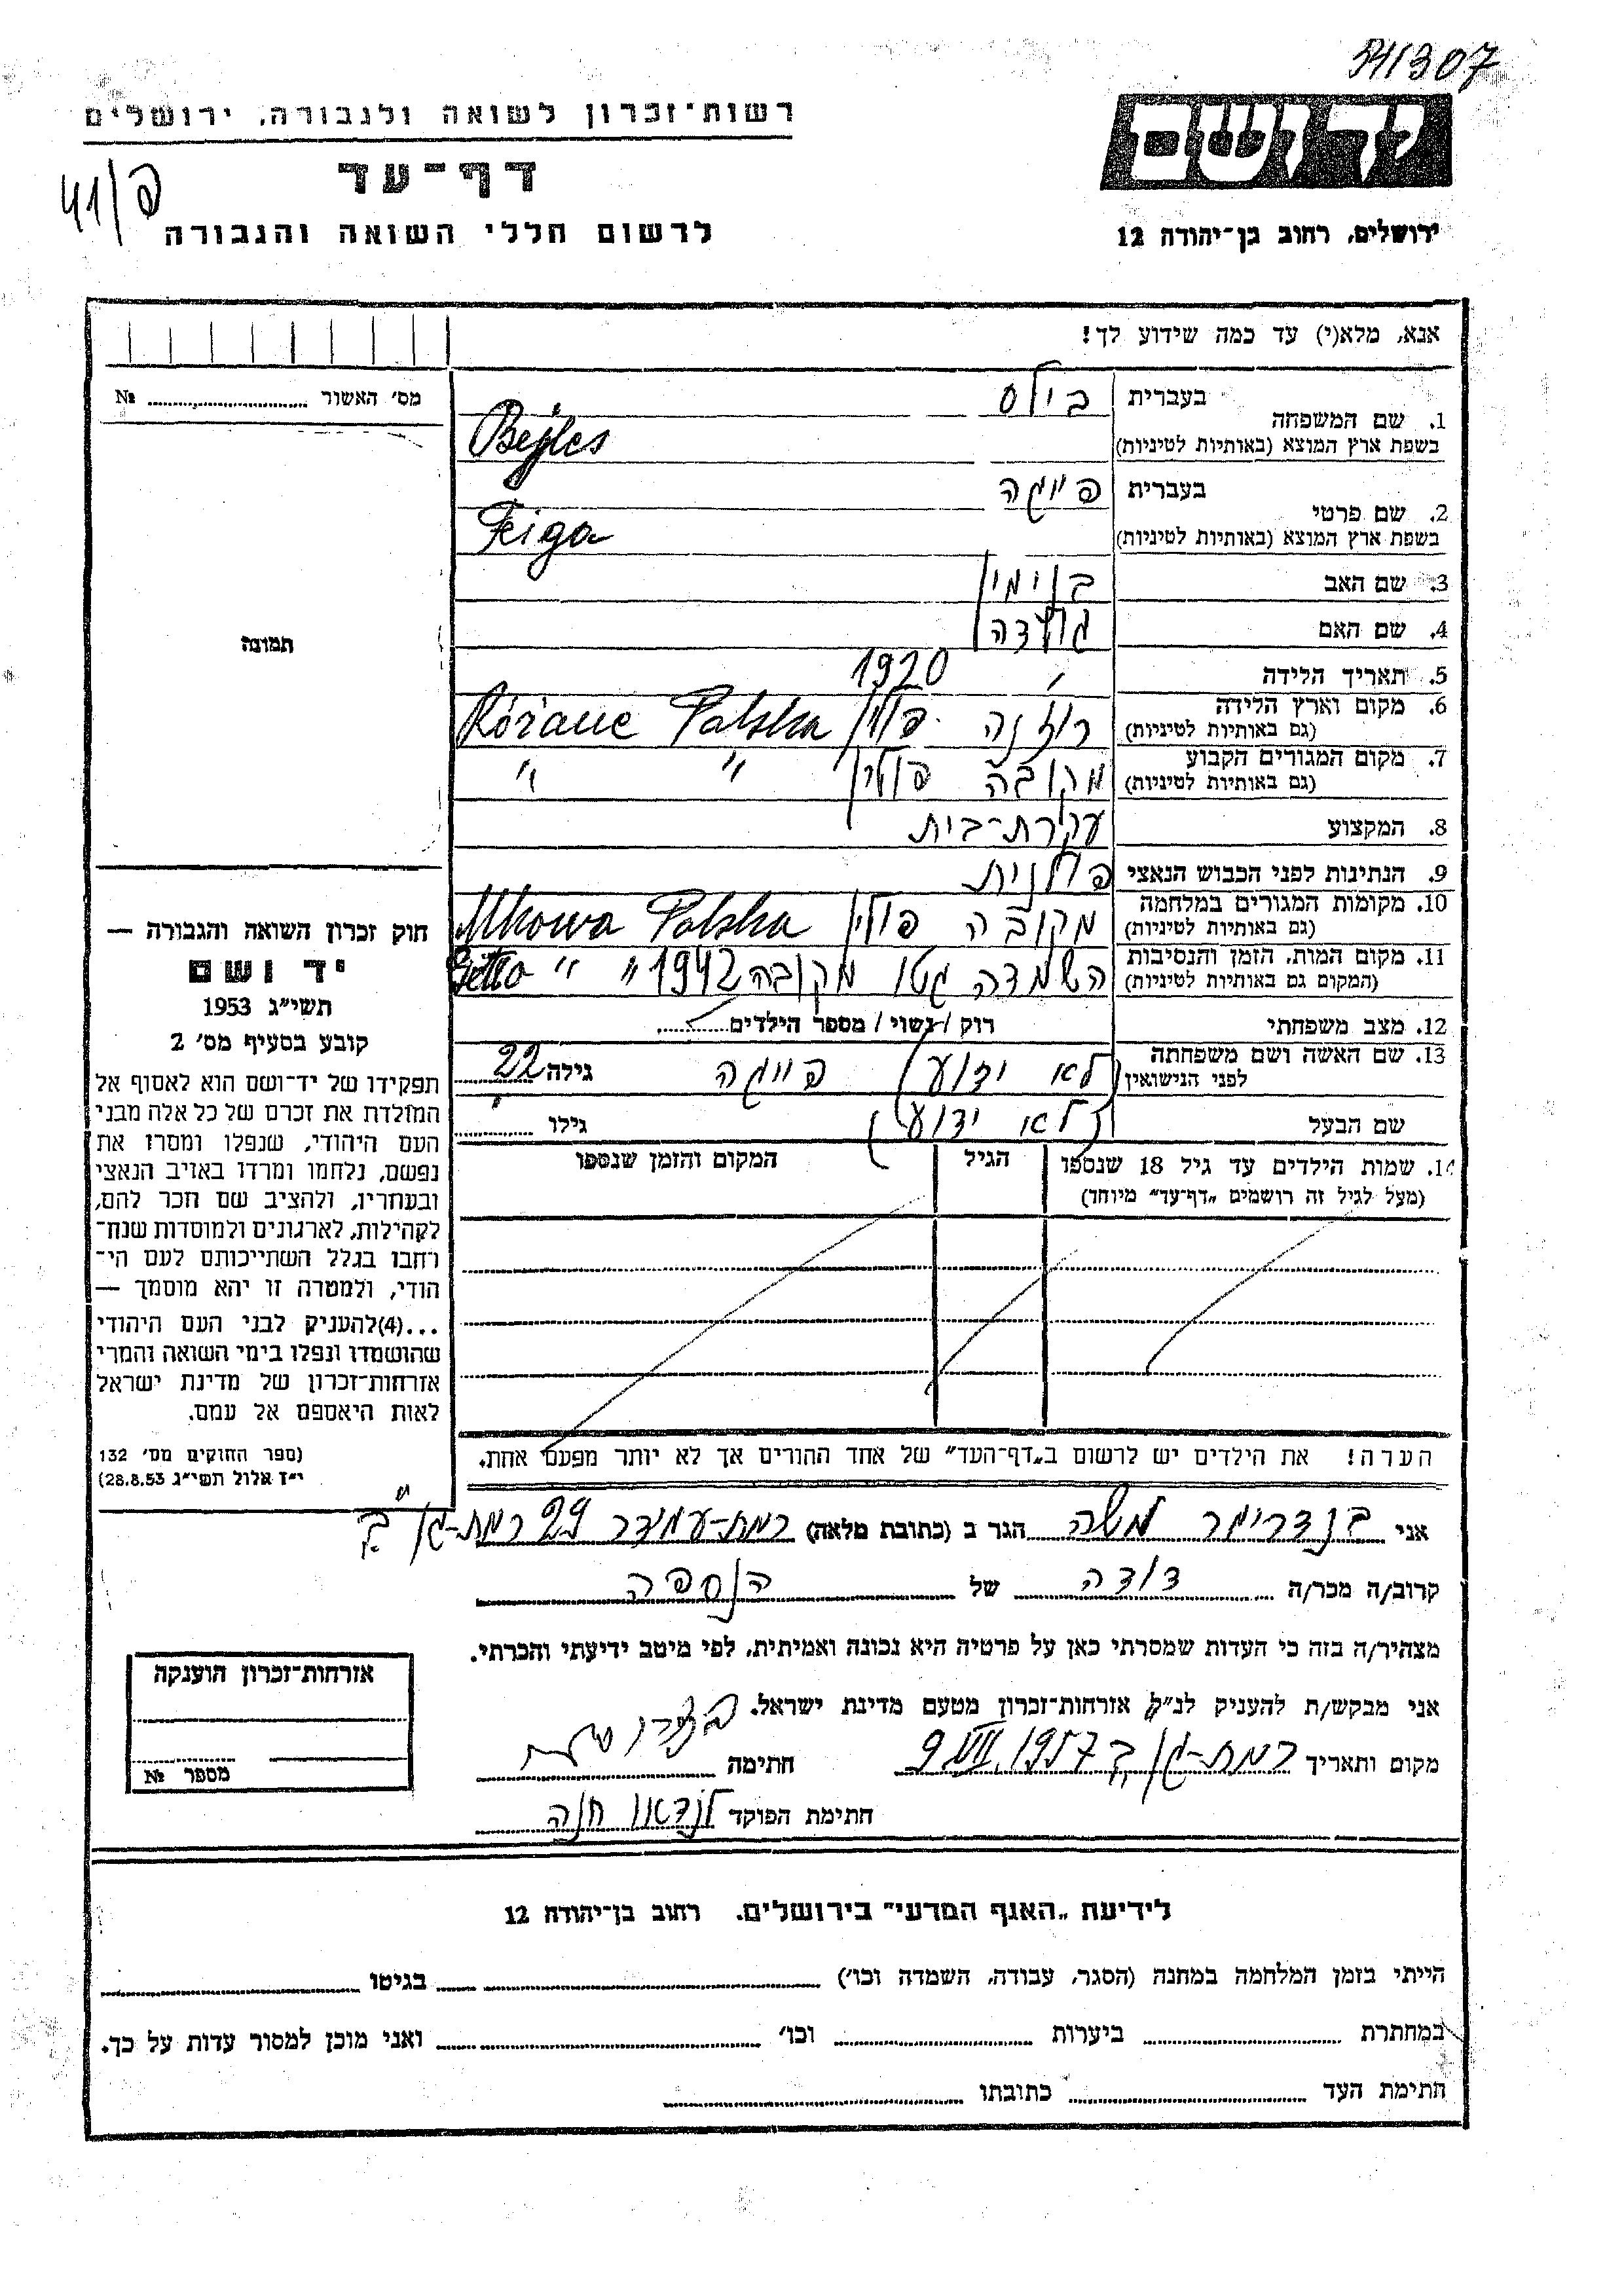 911307
רשות־זכרון לשואה ולגבורה, ירושלים
יד ושם
דף־עד
41/פ
לרשום חללי השואה והגבורה
ירושלים, רחוב בן־יהודה 12
אנא, מלא(י) עד כמה שידוע לך!
מס׳ האשור № 
1. שם המשפחה
בעברית בילס
בשפת ארץ המוצא (באותיות לטיניות) Bejles
2. שם פרטי
בעברית פייגה
בשפת ארץ המוצא (באותיות לטיניות) Feiga
3. שם האב בנימין
4. שם האם גולדה
5. תאריך הלידה 1920
6. מקום וארץ הלידה רוזנה פולין Różane Polska
(גם באותיות לטיניות)
7. מקום המגורים הקבוע מקובה פולין " "
(גם באותיות לטיניות)
8. המקצוע עקרת־בית
9. הנתינות לפני הכבוש הנאצי פולנית
10. מקומות המגורים במלחמה מקובה פולין Mkowa Polska
(גם באותיות לטיניות)
11. מקום המות, הזמן והנסיבות השמדה גטו מקובה 1942 " " Getto
(המקום גם באותיות לטיניות)
12. מצב משפחתי רוק / נשוי / מספר הילדים
13. שם האשה ושם משפחתה
לפני הנישואין (לא ידוע) פייגה גילה 22
שם הבעל (לא ידוע) גילו
14. שמות הילדים עד גיל 18 שנספו הגיל המקום והזמן שנספו
(מעל לגיל זה רושמים „דף־עד״ מיוחד)
הערה! את הילדים יש לרשום ב„דף־העד״ של אחד ההורים אך לא יותר מפעם אחת.
תמונה
חוק זכרון השואה והגבורה —
יד ושם
תשי״ג 1953
קובע בסעיף מס׳ 2
תפקידו של יד־ושם הוא לאסוף אל
המולדת את זכרם של כל אלה מבני
העם היהודי, שנפלו ומסרו את
נפשם, נלחמו ומרדו באויב הנאצי
ובעוזריו, ולהציב שם וזכר להם,
לקהילות, לארגונים ולמוסדות שנח־
רחבו בגלל השתייכותם לעם הי־
הודי, ולמטרה זו יהא מוסמך —
...(4)להעניק לבני העם היהודי
שהושמדו ונפלו בימי השואה והמרי
אזרחות־זכרון של מדינת ישראל
לאות היאספם אל עמם.
(ספר החוקים מס׳ 132
י״ז אלול תשי״ג 28.8.53)
אני בנדרימר משה הגר ב (כתובת מלאה) רמת־עמידר 29 רמת־גן
קרוב/ה מכר/ה דודה של הנספה
מצהיר/ה בזה כי העדות שמסרתי כאן על פרטיה היא נכונה ואמיתית, לפי מיטב ידיעתי והכרתי.
אני מבקש/ת להעניק לנ״ל אזרחות־זכרון מטעם מדינת ישראל.
מקום ותאריך רמת־גן 9.VII.1957 חתימה
חתימת הפוקד לנדאו חנה
אזרחות־זכרון הוענקה
מספר №
לידיעת „האגף המדעי״ בירושלים. רחוב בן־יהודה 12
הייתי בזמן המלחמה במחנה (הסגר, עבודה, השמדה וכו׳) בגיטו
במחתרת ביערות וכו׳ ואני מוכן למסור עדות על כך.
חתימת העד כתובתו